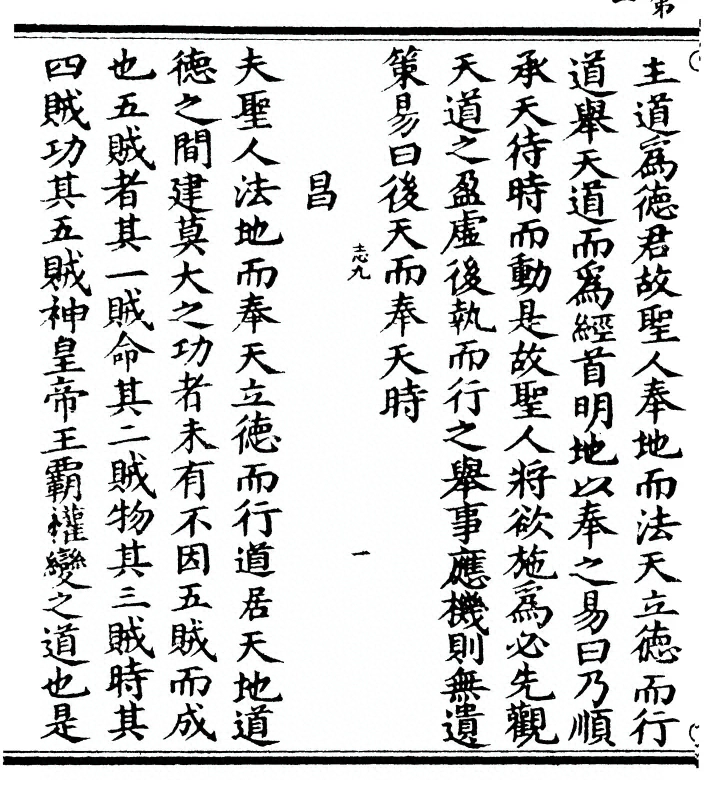 第
主道爲德君故聖人奉地而法天立德而行
道舉天道而爲經首明地以奉之易曰乃順
承天待時而動是故聖人將欲施爲必先觀
天道之盈虛後執而行之舉事應機則無遺
策易曰後天而奉天時
志九
一
昌
夫聖人法地而奉天立德而行道居天地道
德之間建莫大之功者未有不因五賊而成
也五賊者其一賊命其二賊物其三賊時其
四賊功其五賊神皇帝王霸權變之道也是